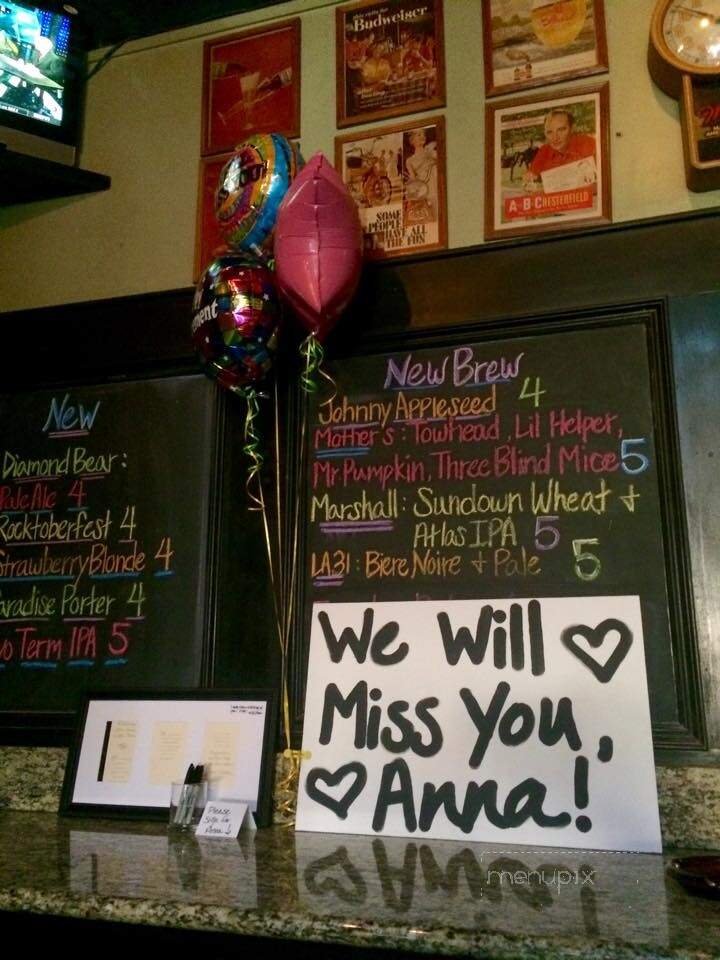 Budweiser
SOME
PEOPLE
HAVE ALL
THE FUN
A·B·C CHESTERFIELD
New
Diamond Bear:
Pale Ale 4
Rocktoberfest 4
Strawberry Blonde 4
Paradise Porter 4
Term IPA 5
New Brew
Johnny Appleseed 4
Mother's: Towhead, Lil Helper,
Mr. Pumpkin, Three Blind Mice 5
Marshall: Sundown Wheat +
Atlas IPA 5
LA31: Biere Noire + Pale 5
We Will
Miss You,
Anna!
Please
Sign for
Anna
menupix